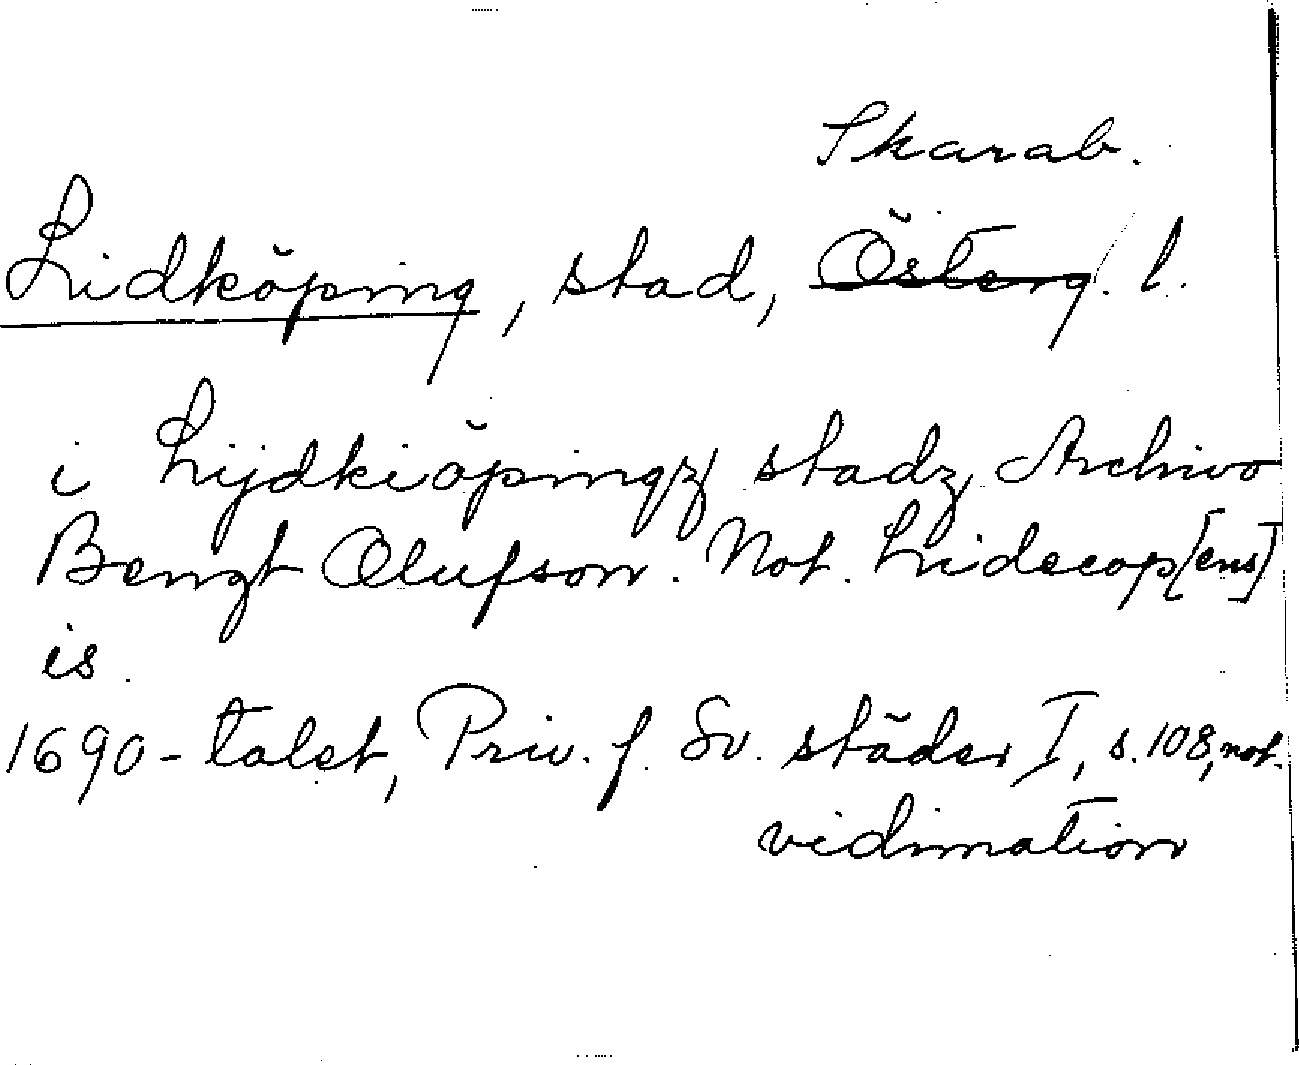 Skarab.
Lidköping, stad, Österg. l.
i Lijdkiöpingz stadz Archivo
Bengt Olufson. Not. Lidecop[ens]
is
1690-talet, Priv. f. Sv. städer I, s. 108, not.
vidimation